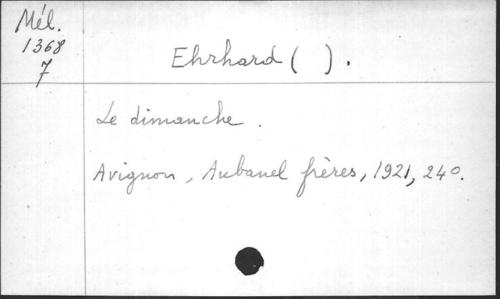 Mél.
1368
7
Ehrhard ( ).
Le dimanche.
Avignon, Aubanel frères, 1921, 24°.